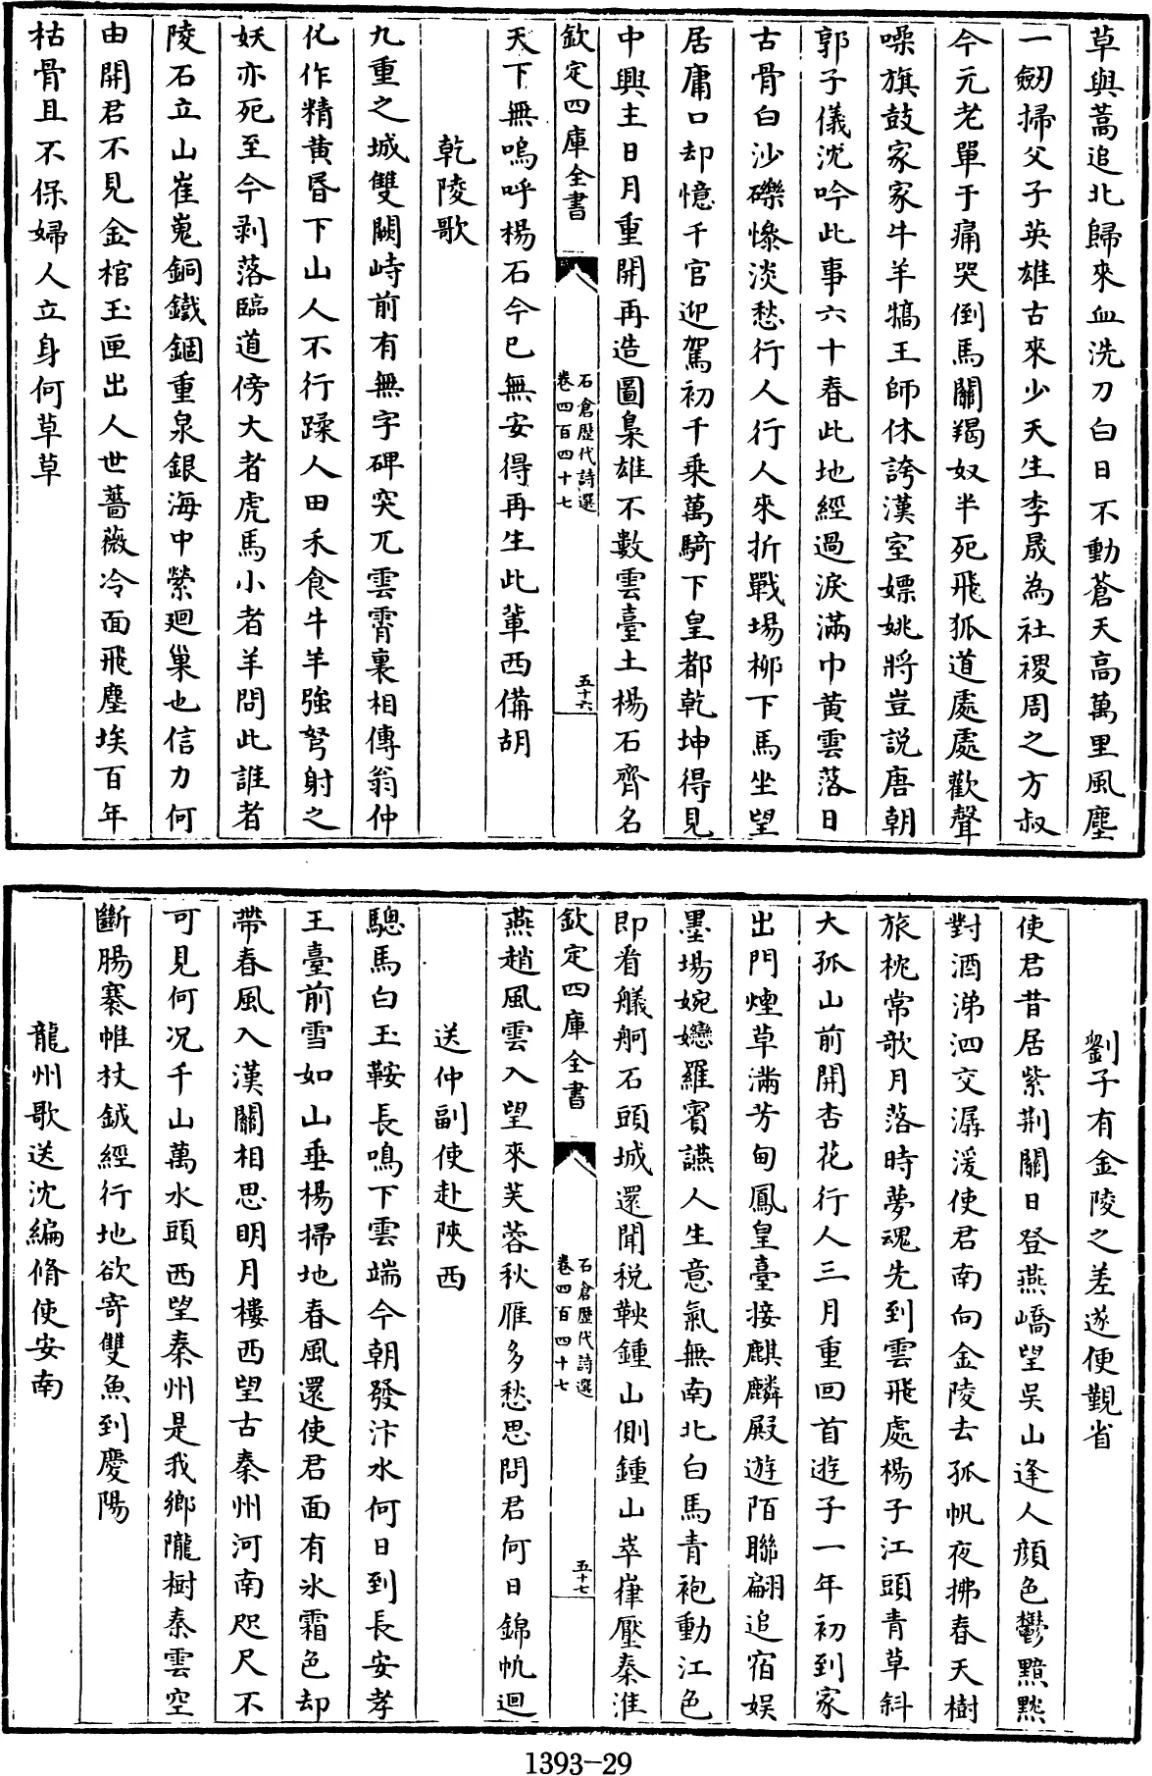 草與蒿追北歸來血洗刀白日不動蒼天高萬里風塵
一劒掃父子英雄古來少天生李晟為社稷周之方叔
今元老單于痛哭倒馬關羯奴半死飛狐道處處歡聲
噪旗鼓家家牛羊犒王師休誇漢室嫖姚將豈說唐朝
郭子儀沈吟此事六十春此地經過淚滿巾黄雲落日
古骨白沙礫慘淡愁行人行人來折戰場柳下馬坐望
居庸口却憶千官迎駕初千乘萬騎下皇都乾坤得見
中興主日月重開再造圖梟雄不數雲臺士楊石齊名
欽定四庫全書
石倉歷代詩選
卷四百四十七
五十六
天下無嗚呼楊石今已無安得再生此輩西備胡
乾陵歌
九重之城雙闕峙前有無字碑突兀雲霄裏相傳翁仲
化作精黄昏下山人不行蹂人田禾食牛羊強弩射之
妖亦死至今剥落臨道傍大者虎馬小者羊問此誰者
陵石立山崔嵬銅鐵錮重泉銀海中縈廻巢也信力何
由開君不見金棺玉匣出人世薔薇冷面飛塵埃百年
枯骨且不保婦人立身何草草
劉子有金陵之差遂便覲省
使君昔居紫荆關日登燕嶠望吳山逢人顔色鬱黯黙
對酒涕泗交潺湲使君南向金陵去孤帆夜拂春天樹
旅枕常歌月落時夢魂先到雲飛處楊子江頭青草斜
大孤山前開杏花行人三月重回首遊子一年初到家
出門煙草滿芳甸鳳皇臺接麒麟殿遊陌聯翩追宿娱
墨場婉戀羅賓讌人生意氣無南北白馬青袍動江色
即看艤舸石頭城還聞税鞅鍾山側鍾山崒嵂壓秦淮
欽定四庫全書
石倉歷代詩選
卷四百四十七
五十七
燕趙風雲入望來芙蓉秋雁多愁思問君何日錦帆迴
送仲副使赴陜西
驄馬白玉鞍長鳴下雲端今朝發汴水何日到長安孝
王臺前雪如山垂楊掃地春風還使君面有氷霜色却
帶春風入漢關相思明月樓西望古秦州河南咫尺不
可見何況千山萬水頭西望秦州是我鄉隴樹秦雲空
斷腸褰帷杖鉞經行地欲寄雙魚到慶陽
龍州歌送沈編脩使安南
1393-29